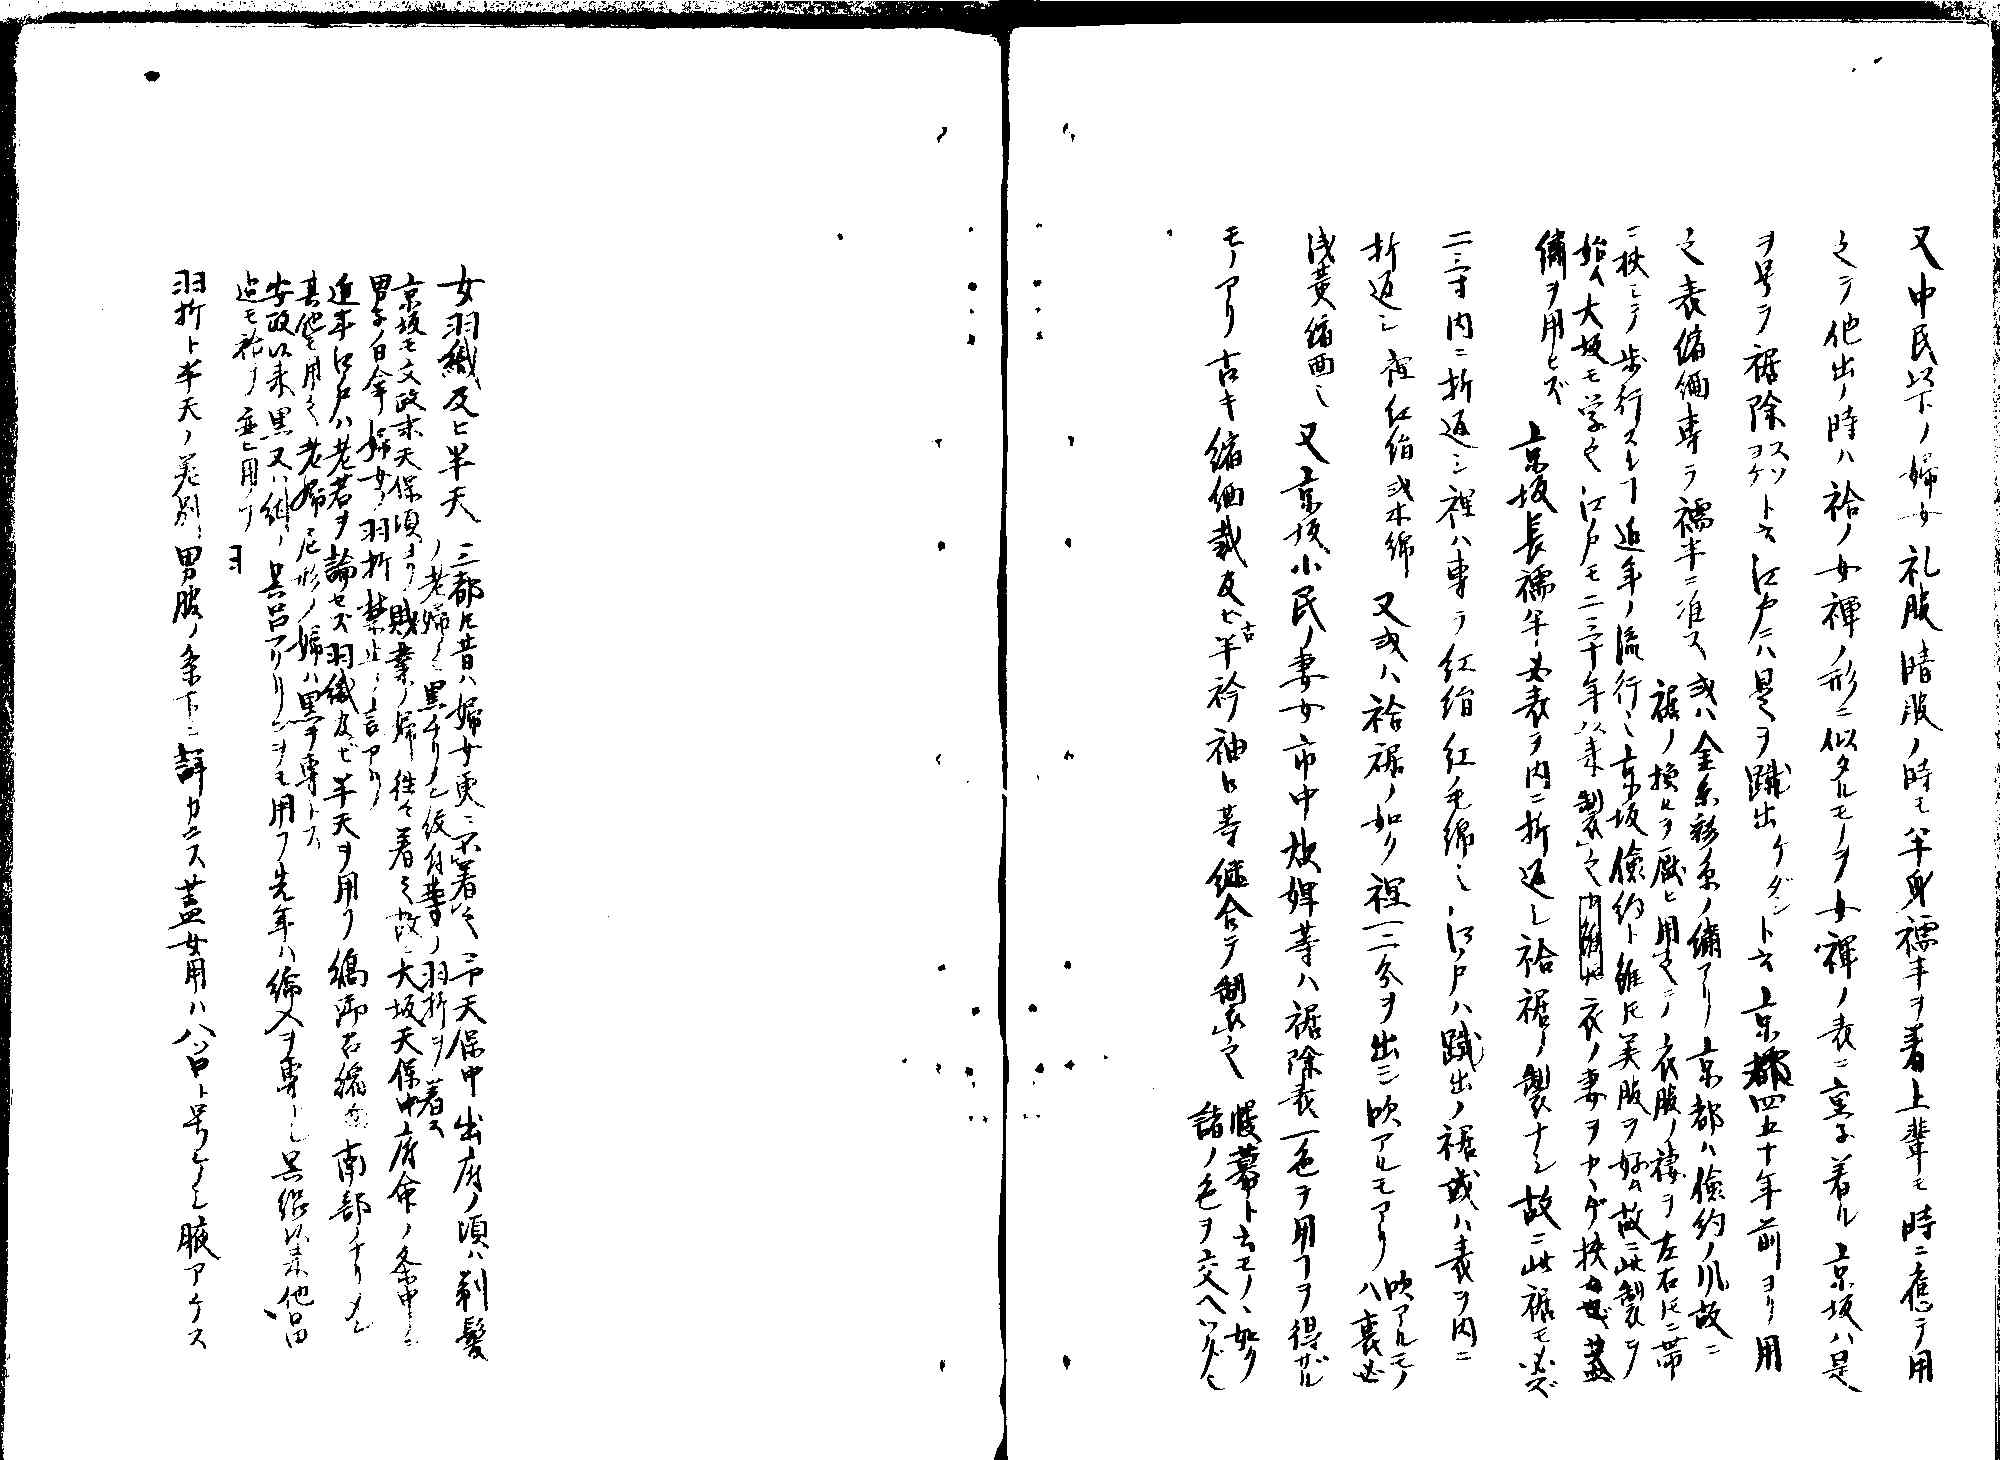 又中民以下ノ婦女礼服晴服ノ時モ半身襦半ヲ着上輩モ時ニ應テ用
之テ他出ノ時ハ袷ノ女褌ノ形ニ似タルモノヲ女褌ノ表ニ重子着ル京坂ハ是
ヲ号テ裾除スソヨケト云江戸ニハ是ヲ蹴出ケダシト云京都四五十年前ヨリ用
之表縮緬専ラ襦半ニ准ス
或ハ金糸彩糸ノ繍アリ京都ハ倹約ノ風故ニ
裾ノ損ヒヲ厭ヒ用之テ衣服ノ褄ヲ左右トモニ帯
ニ挟ミテ歩行スルコト近年ノ流行也京坂倹約ト雖トモ美服ヲ好ム故ニ此製ヲ
始ム大坂モ学之江戸モ二三十年以来製之
衣ノ妻ヲ
挟
蓋
繍ヲ用ヒズ
京坂長襦半必表ヲ内ニ折返シ袷裾ノ製ナシ故ニ此裾モ必ズ
二三寸内ニ折返シ裡ハ専ラ紅絹紅毛綿也江戸ハ蹴出ノ裾或ハ表ヲ内ニ
折返シ裡紅絹或木綿又或ハ袷裾ノ如ク裡一二分ヲ出シ吹アルモアリ
吹アルモノ
ハ裏必
浅黄縮緬也又京坂小民ノ妻女市中放婢等ハ裾除表一色ヲ用フヲ得ザル
モノアリ古キ縮緬裁及ビ古半衿袖口等継合テ製之
幔幕ト云モノヽ如ク
諸ノ色ヲ交ヘツグ也
女羽織及ヒ半天
三都トモ昔ハ婦女更ニ不着之
天保中出府ノ頃ハ剃髪
ノ老婦ノミ黒チリメン紋付等ノ羽折ヲ着ス
京坂モ文政末天保頃ヨリ賎業ノ婦往々着之故ニ大坂天保中府命ノ条中ニ
男子ノ日傘婦女ノ羽折禁止ノ言アリ
近年江戸ハ老若ヲ論セズ羽織及ビ半天ヲ用フ縞御召縮緬南部チリメン
其他モ用之老婦尼形ノ婦ハ黒ヲ専トス
安政以来黒又ハ紺ノ呉呂フクリンヲモ用フ先年ハ綿入ヲ専トシ呂以来他品
迄モ袷ノ重ヒ用フ
羽折ト半天ノ差別男服ノ条下ニ詳カニス蓋女用ハ八ツ口ト号シノミ腋アケス